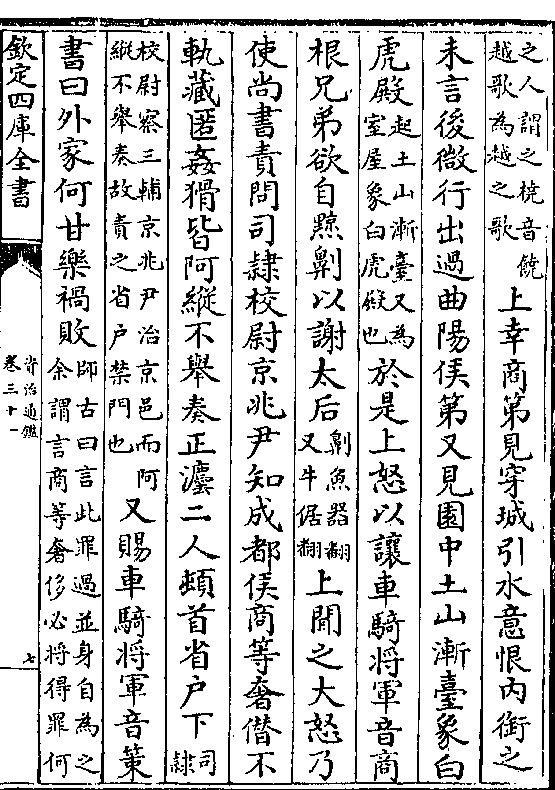 之人謂之橈音饒
越歌為越之歌
上幸商第見穿城引水意恨内銜之
未言後微行出過曲陽侯第又見園中土山漸臺象白
虎殿
起土山漸臺又為
室屋象白虎殿也
於是上怒以讓車騎将軍音商
根兄弟欲自黥劓以謝太后
劓魚器翻
又牛倨翻
上聞之大怒乃
使尚書責問司隷校尉京兆尹知成都侯商等奢僭不
軌藏匿姦猾皆阿縱不舉奏正灋二人頓首省户下
司
隷
校尉察三輔京兆尹治京邑而阿
縱不舉奏故責之省户禁門也
又賜車騎将軍音策
書曰外家何甘樂禍敗
師古曰言此罪過並身自為之
余謂言商等奢侈必将得罪何
欽定四庫全書
資治通鑑
卷三十一
七